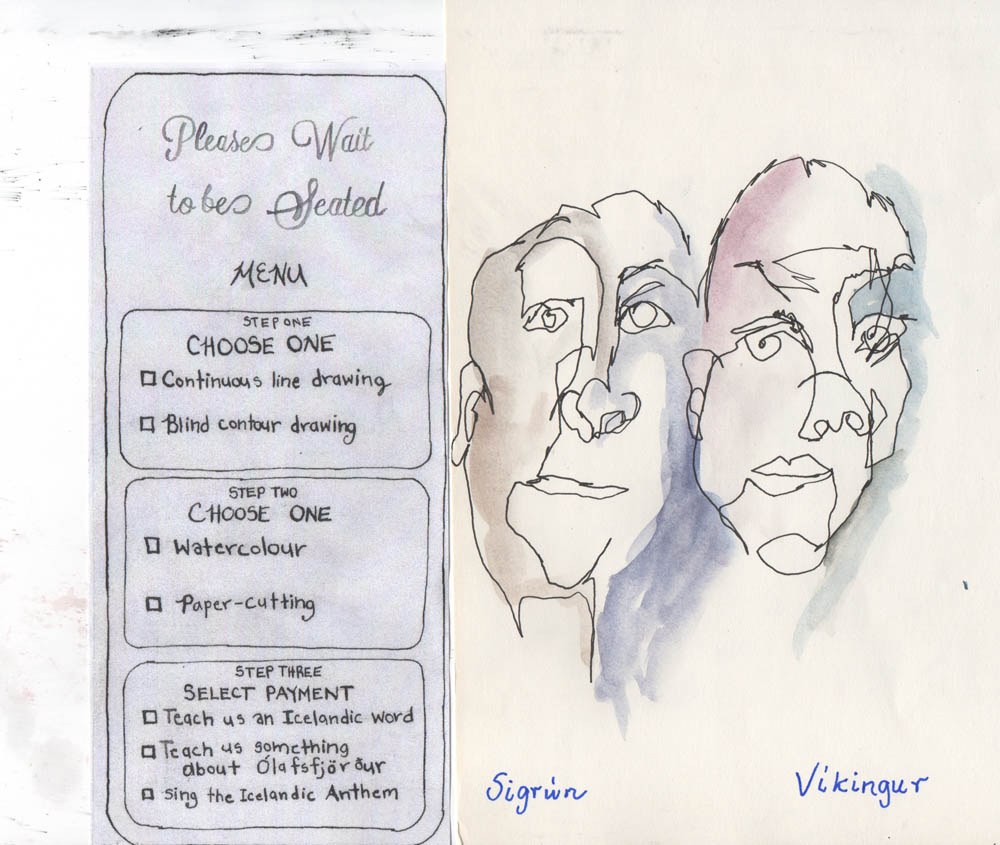 Please Wait
to be Seated
MENU
STEP ONE
CHOOSE ONE
Continuous line drawing
Blind contour drawing
STEP TWO
CHOOSE ONE
Watercolour
Paper-cutting
STEP THREE
SELECT PAYMENT
Teach us an Icelandic word
Teach us something
about Ólafsfjörður
Sing the Icelandic Anthem
Sigrún
Víkingur